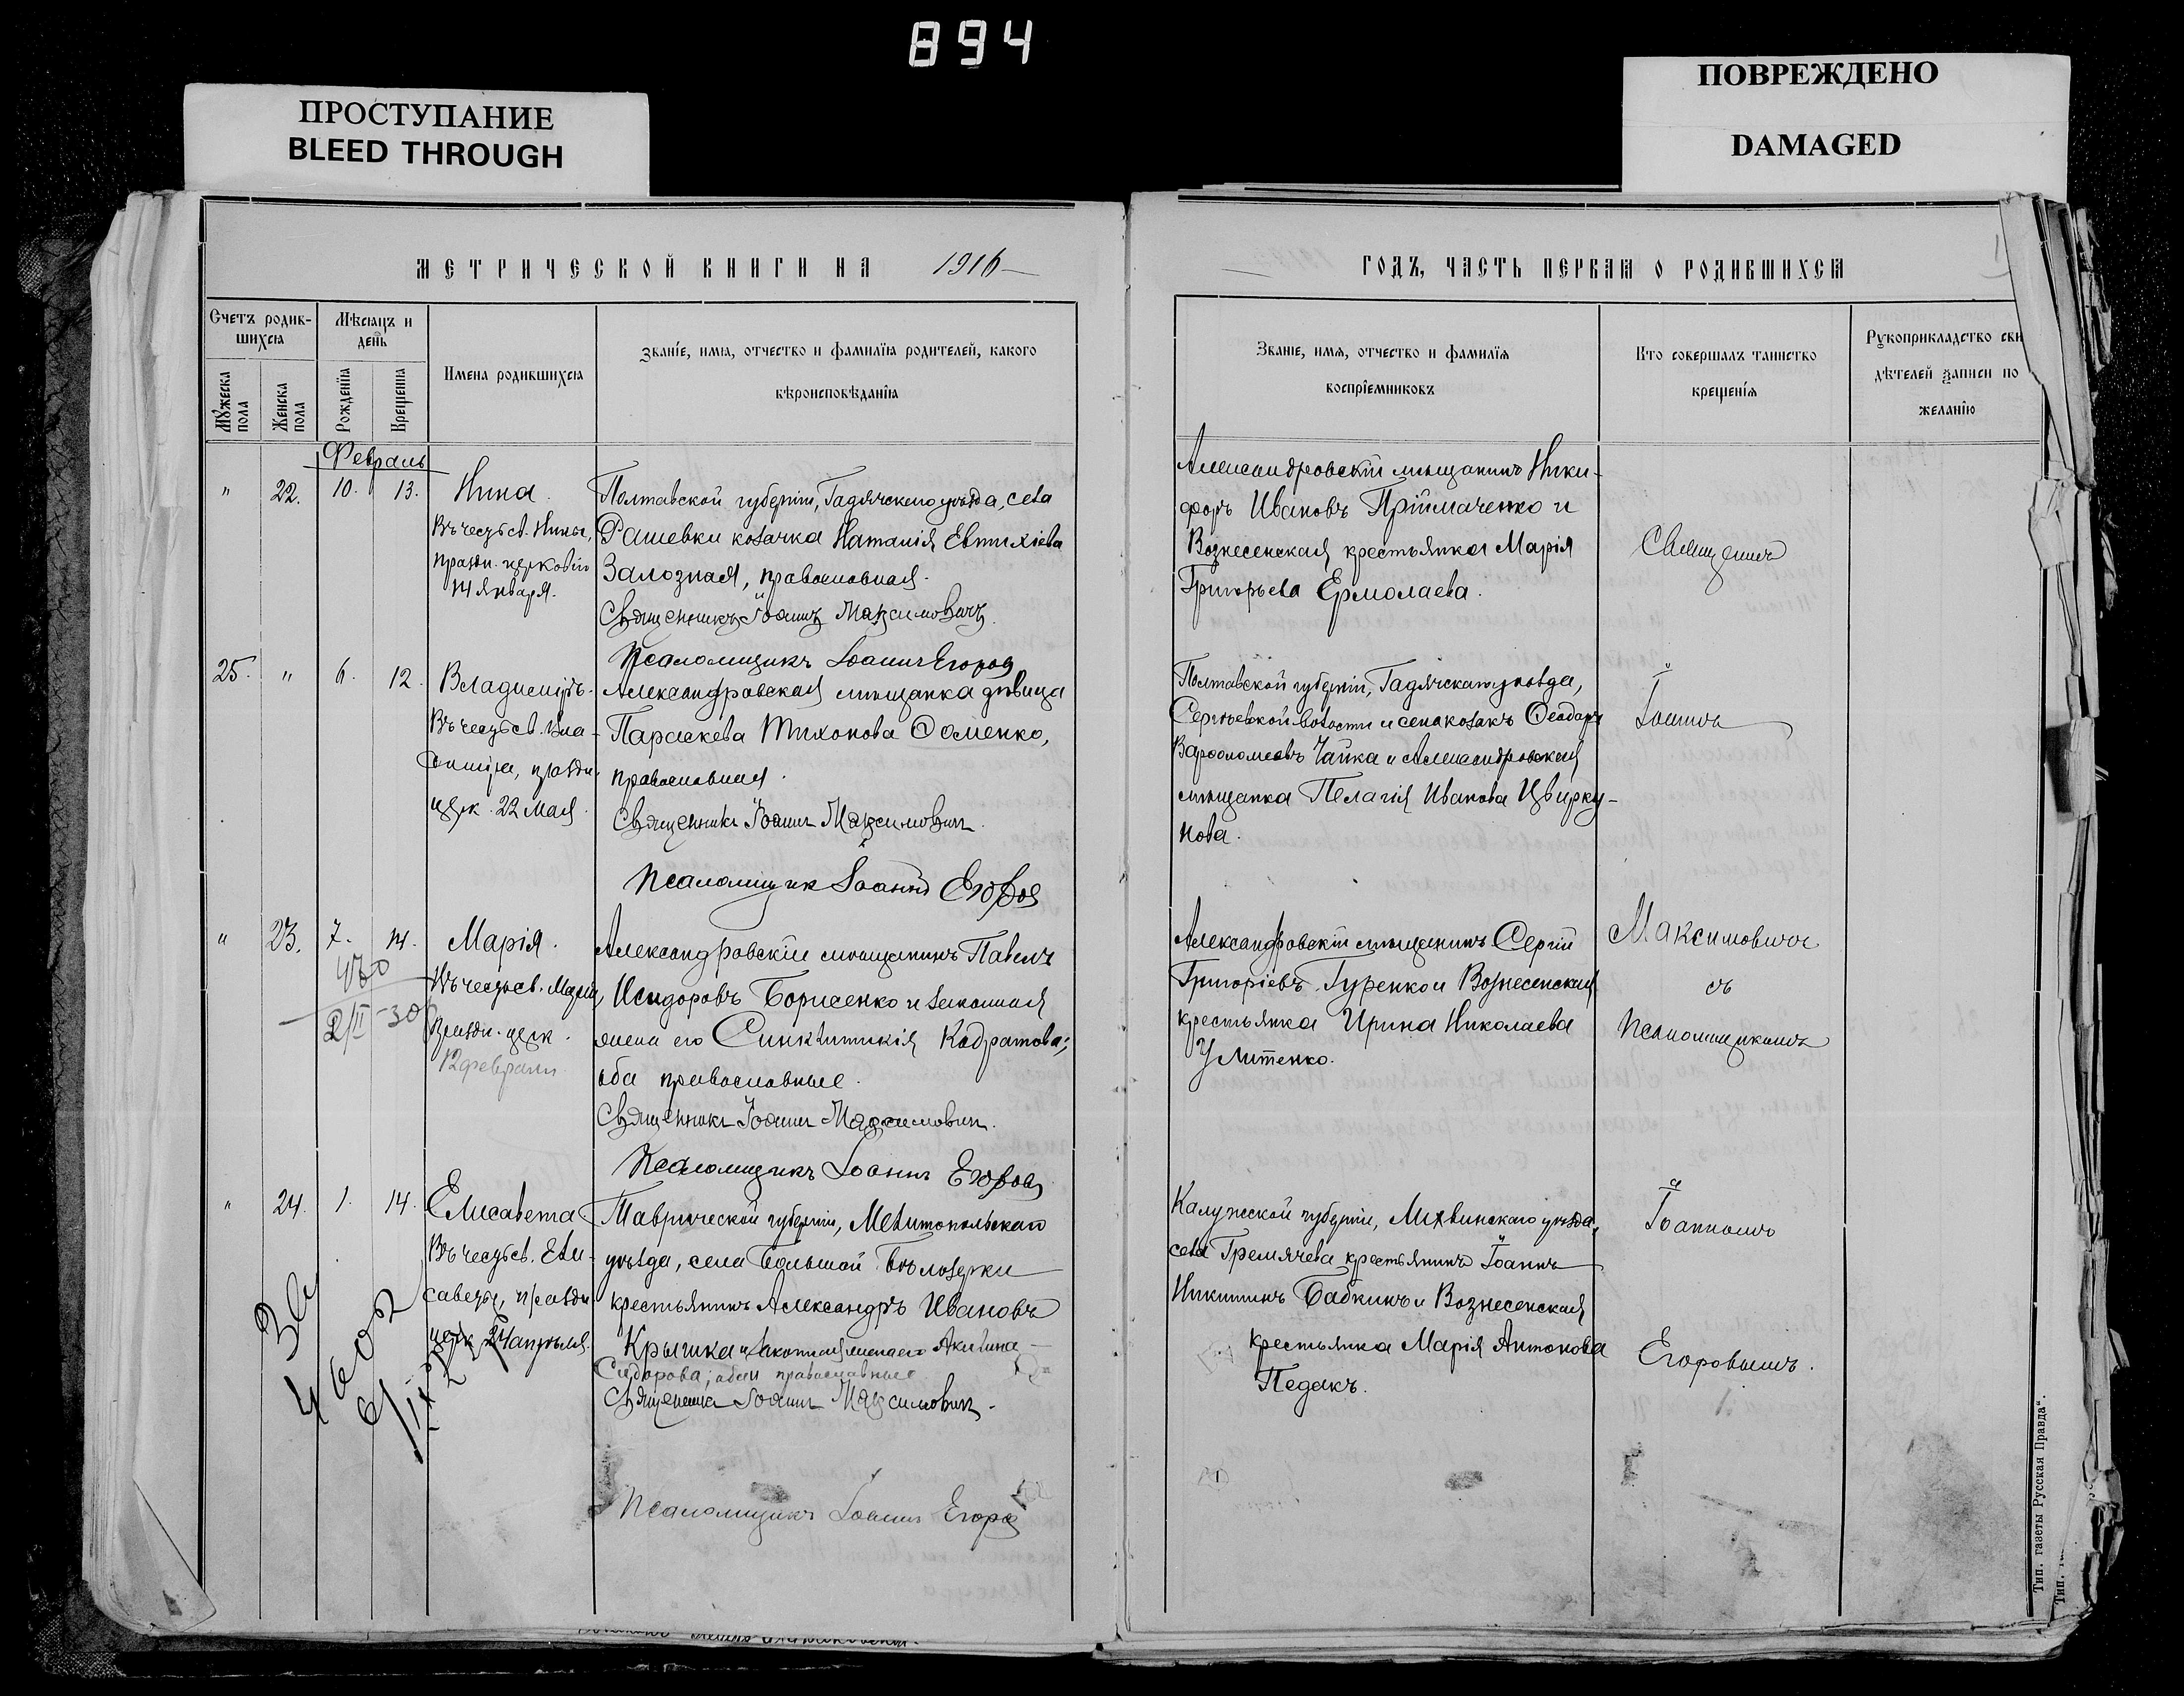 894
ПРОСТУПАНИЕ
BLEED THROUGH
ПОВРЕЖДЕНО
DAMAGED
МЕТРИЧЕСКОЙ КНИГИ НА 1916
Счетъ родив-
шихся
Мужеска пола
Женска пола
Мѣсяцъ и
день
Рожденія
Крещенія
Имена родившихся
Званіе, имя, отчество и фамилія родителей, какого
вѣроисповѣданія
Февраль
" 22. 10. 13.
Нина.
Въ честь св. Нины,
праздн. церковію
14 января.
Полтавской губерніи, Гадячскаго уѣзда, села
Рашевки козачка Наталія Евтихіева
Залозная, православная.
Священникъ Іоаннъ Максимовичъ.
Псаломщикъ Іоаннъ Егоровъ
25. " 6. 12.
Владиміръ.
Въ честь св. Вла-
диміра, праздн.
церк. 22 мая.
Александровская мѣщанка дѣвица
Параскева Тихонова Фоменко,
православная.
Священникъ Іоаннъ Максимовичъ.
Псаломщикъ Іоаннъ Егоровъ
" 23. 7. 14.
Марія.
Въ честь св. Маріи,
праздн. церк.
12 февраля
Александровскій мѣщанинъ Павелъ
Исидоровъ Борисенко и законная
жена его Синклитикія Кодратова;
оба православные.
Священникъ Іоаннъ Максимовичъ.
Псаломщикъ Іоаннъ Егоровъ
" 24. 1. 14.
Елисавета
Въ честь св. Ели-
саветы, праздн.
церк. 24 апрѣля.
Таврической губерніи, Мелитопольскаго
уѣзда, села Большой Бѣлозерки
крестьянинъ Александръ Ивановъ
Крышка и законная жена его Акилина
Сидорова; оба православные.
Священникъ Іоаннъ Максимовичъ.
Псаломщикъ Іоаннъ Егоровъ
ГОДЪ, ЧАСТЬ ПЕРВАЯ О РОДИВШИХСЯ
Званіе, имя, отчество и фамилія
воспріемниковъ
Кто совершалъ таинство
крещенія
Рукоприкладство сви
дѣтелей записи по
желанію
Александровскій мѣщанинъ Ники-
форъ Ивановъ Пріймаченко и
Вознесенская крестьянка Марія
Григорьева Ермолаева.
Полтавской губерніи, Гадячскаго уѣзда,
Сергѣевской волости и села козакъ Ѳеодоръ
Варѳоломеевъ Чайка и Александровская
мѣщанка Пелагія Иванова Цвирку-
нова.
Александровскій мѣщанинъ Сергій
Григоріевъ Гуренко и Вознесенская
крестьянка Ирина Николаева
Улитенко.
Калужской губерніи, Лихвинскаго уѣзда,
села Гремячева крестьянинъ Іоаннъ
Никитинъ Бабкинъ и Вознесенская
крестьянка Марія Антонова
Педакъ.
Священникъ
Іоаннъ
Максимовичъ
съ
Псаломщикомъ
Іоанномъ
Егоровымъ.
Тип. газеты Русская Правда".